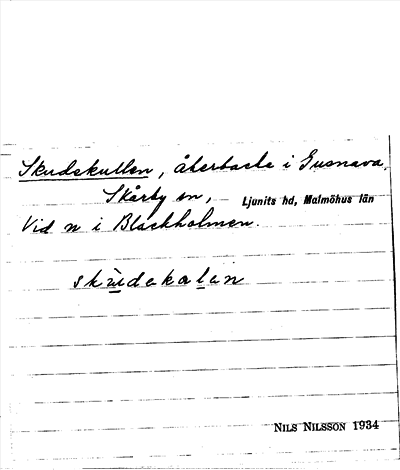 Skudekullen, åkerbacke i Gusnava,
Skårby sn, Ljunits hd, Malmöhus län
Vid n i Blackholmen.
skùdekalen
NILS NILSSON 1934